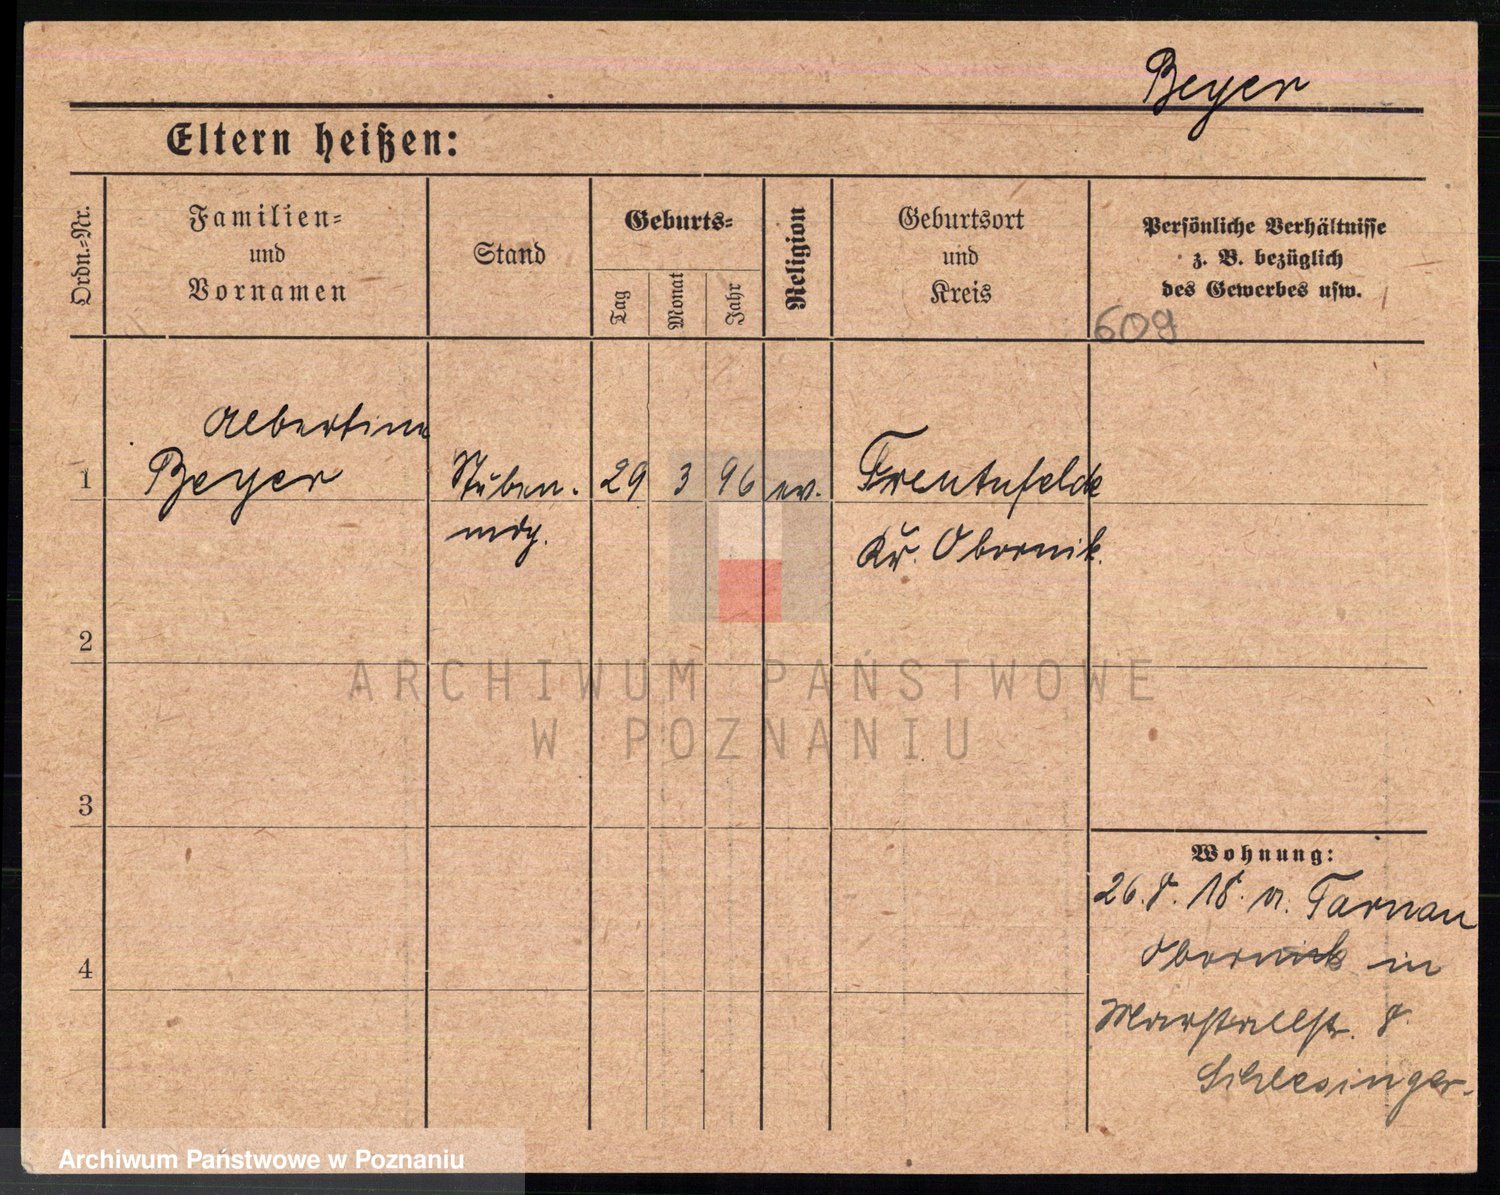 Beyer
Eltern heißen:
Ordn.-Nr.
Familien-
und
Vornamen
Stand
Geburts-
Tag
Monat
Jahr
Religion
Geburtsort
und
Kreis
Persönliche Verhältnisse
z. B. bezüglich
des Gewerbes usw.
609
Albertine
1 Beyer Stuben- 29 3 96 ev.
mdch.
Kr. Obornik.
2
3
4
Wohnung:
26.8.18. a. Tarnau
Obornik in
Marstallstr. 8
Schlesinger.
ARCHIWUM PAŃSTWOWE
W POZNANIU
Archiwum Państwowe w Poznaniu